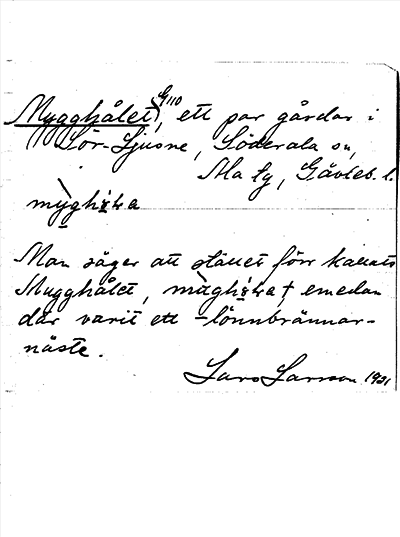 Mygghålet, G110 ett par gårdar i
Sör-Ljusne, Söderala sn,
Ala tg, Gävleb. l.
Man säger att stället förr kallats
Mugghålet, emedan
där varit ett lönnbrännar-
näste.
Lars Larsson 1931